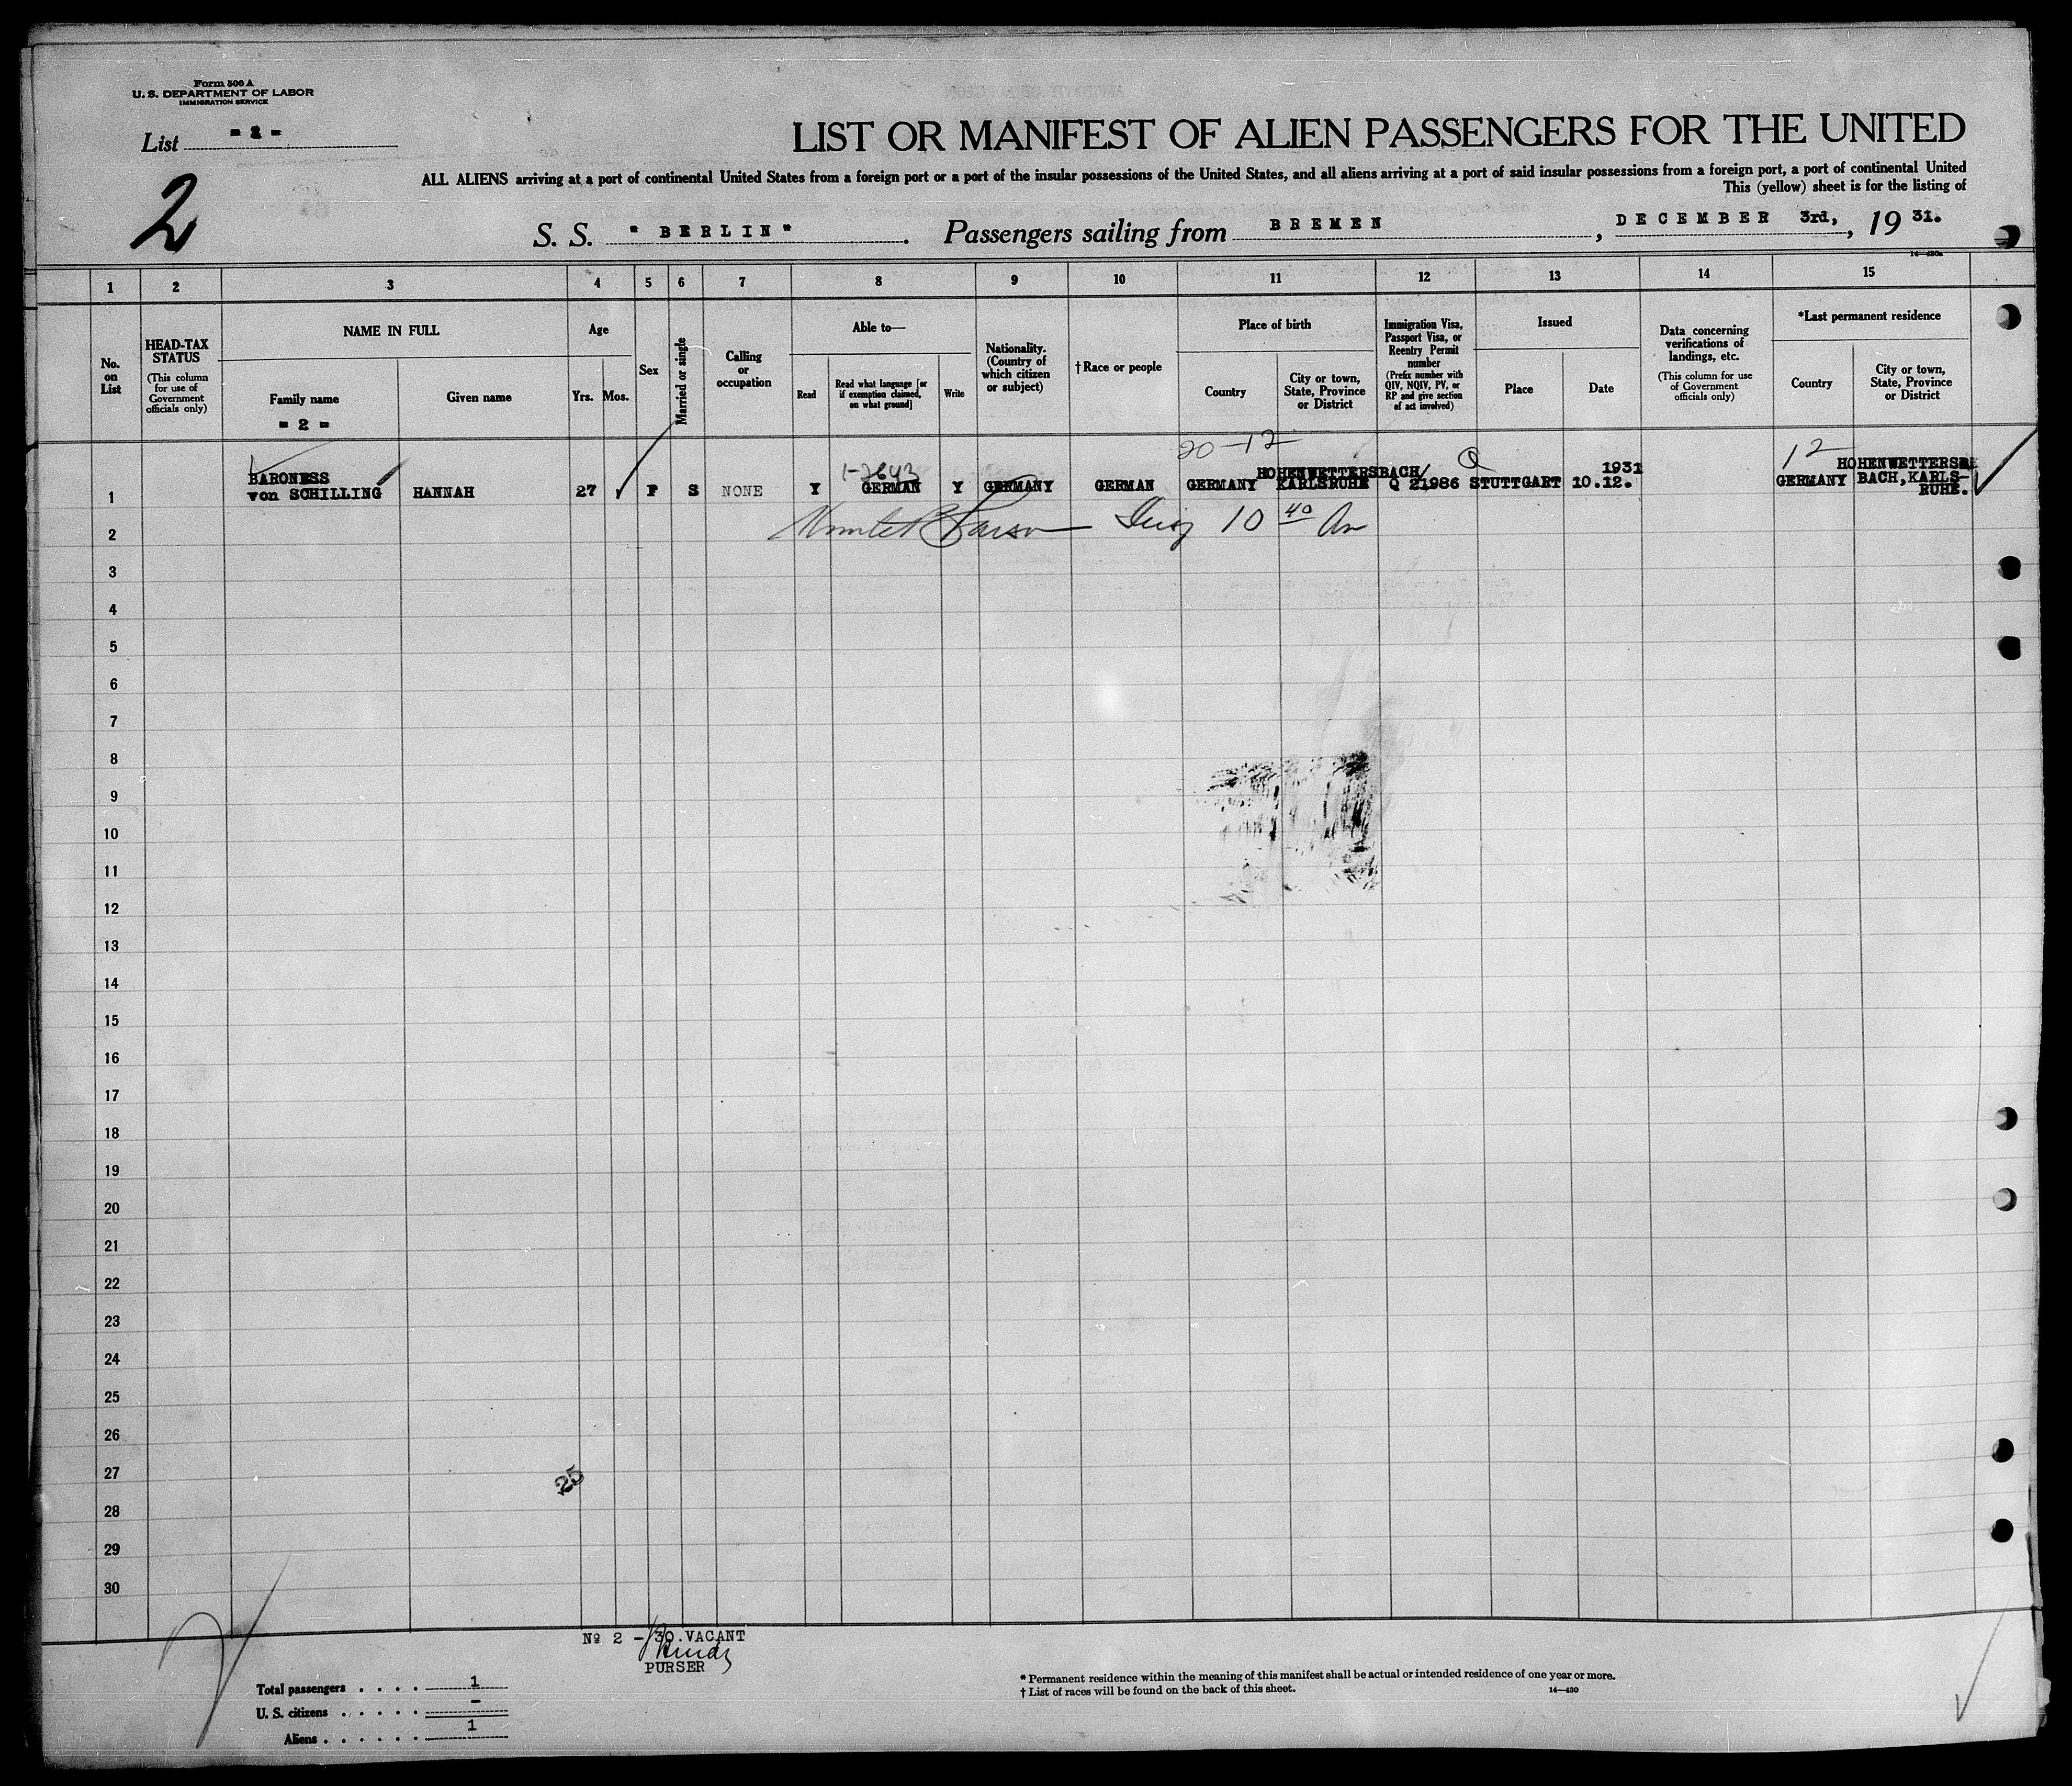 Form 500 A
U. S. DEPARTMENT OF LABOR
IMMIGRATION SERVICE
List
2
LIST OR MANIFEST OF ALIEN PASSENGERS FOR THE UNITED
ALL ALIENS arriving at a port of continental United States from a foreign port or a port of the insular possessions of the United States, and all aliens arriving at a port of said insular possessions from a foreign port, a port of continental United
This (yellow) sheet is for the listing of
S. S. " BERLIN" . Passengers sailing from BREMEN , DECEMBER 3rd, , 19 31.
1 2 3 4 5 6 7 8 9 10 11 12 13 14 15
No. on List
HEAD-TAX STATUS
(This column for use of Government officials only)
NAME IN FULL
Family name
- 2 -
Given name
Age
Yrs. Mos.
Sex
Married or single
Calling or occupation
Able to—
Read
Read what language [or if exemption claimed, on what ground]
Write
Nationality. (Country of which citizen or subject)
† Race or people
Place of birth
Country
City or town, State, Province or District
Immigration Visa, Passport Visa, or Reentry Permit number
(Prefix number with QIV, NQIV, PV, or RP and give section of act involved)
Issued
Place
Date
Data concerning verifications of landings, etc.
(This column for use of Government officials only)
*Last permanent residence
Country
City or town, State, Province or District
20-12
1-2643
Q
12
BARONESS HOHENWETTERSBACH 1931 HOHENWETTERS
1 von SCHILLING HANNAH 27 F S NONE Y GERMAN Y GERMANY GERMAN GERMANY KARLSRUHE Q 21986 STUTTGART 10.12. GERMANY BACH, KARLS-
RUHE.
10 40
2
3
4
5
6
7
8
9
10
11
12
13
14
15
16
17
18
19
20
21
22
23
24
25
26
27
28
29
30
25
Nº 2 - 30. VACANT
PURSER
Total passengers . . . . 1
U. S. citizens . . . . . -
Aliens . . . . . . 1
* Permanent residence within the meaning of this manifest shall be actual or intended residence of one year or more.
† List of races will be found on the back of this sheet.
14—430